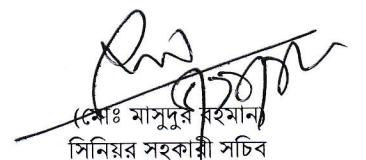 (মোঃ মাসুদুর রহমান)
সিনিয়র সহকারী সচিব